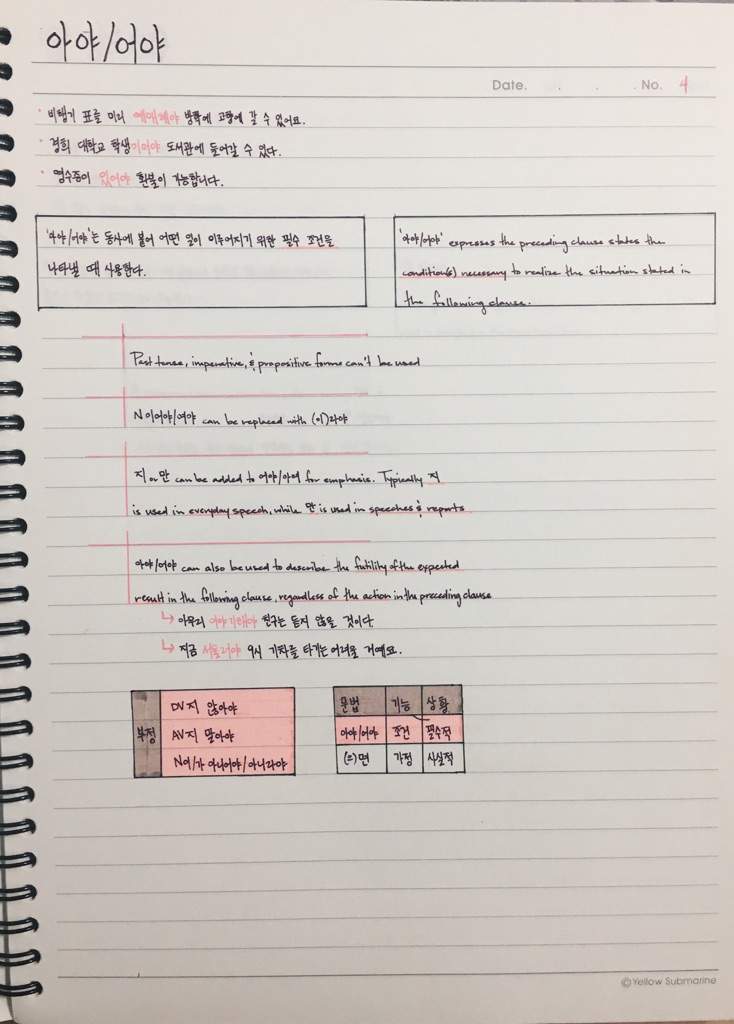 아야/어야
Date. . . . No. 4
· 비행기 표를 미리 예매해야 방학에 고향에 갈 수 있어요.
· 경희 대학교 학생이어야 도서관에 들어갈 수 있다.
· 영수증이 있어야 환불이 가능합니다.
'아야/어야'는 동사에 붙어 어떤 일이 이루어지기 위한 필수 조건을
나타낼 때 사용한다.
'아야/어야' expresses the preceding clause states the
condition(s) necessary to realize the situation stated in
the following clause.
Past tense, imperative, & propositive forms can't be used
N이어야/여야 can be replaced with (이)라야
지 or 만 can be added to 어야/아야 for emphasis. Typically 지
is used in everyday speech, while 만 is used in speeches & reports
아야/어야 can also be used to describe the futility of the expected
result in the following clause, regardless of the action in the preceding clause
↳ 아무리 이야기해야 친구는 듣지 않을 것이다
↳ 지금 서둘러야 9시 기차를 타기는 어려울 거예요.
부정
DV지 않아야
AV지 말아야
N이/가 아니어야/아니라야
문법 기능 상황
아야/어야 조건 필수적
(으)면 가정 사실적
©Yellow Submarine